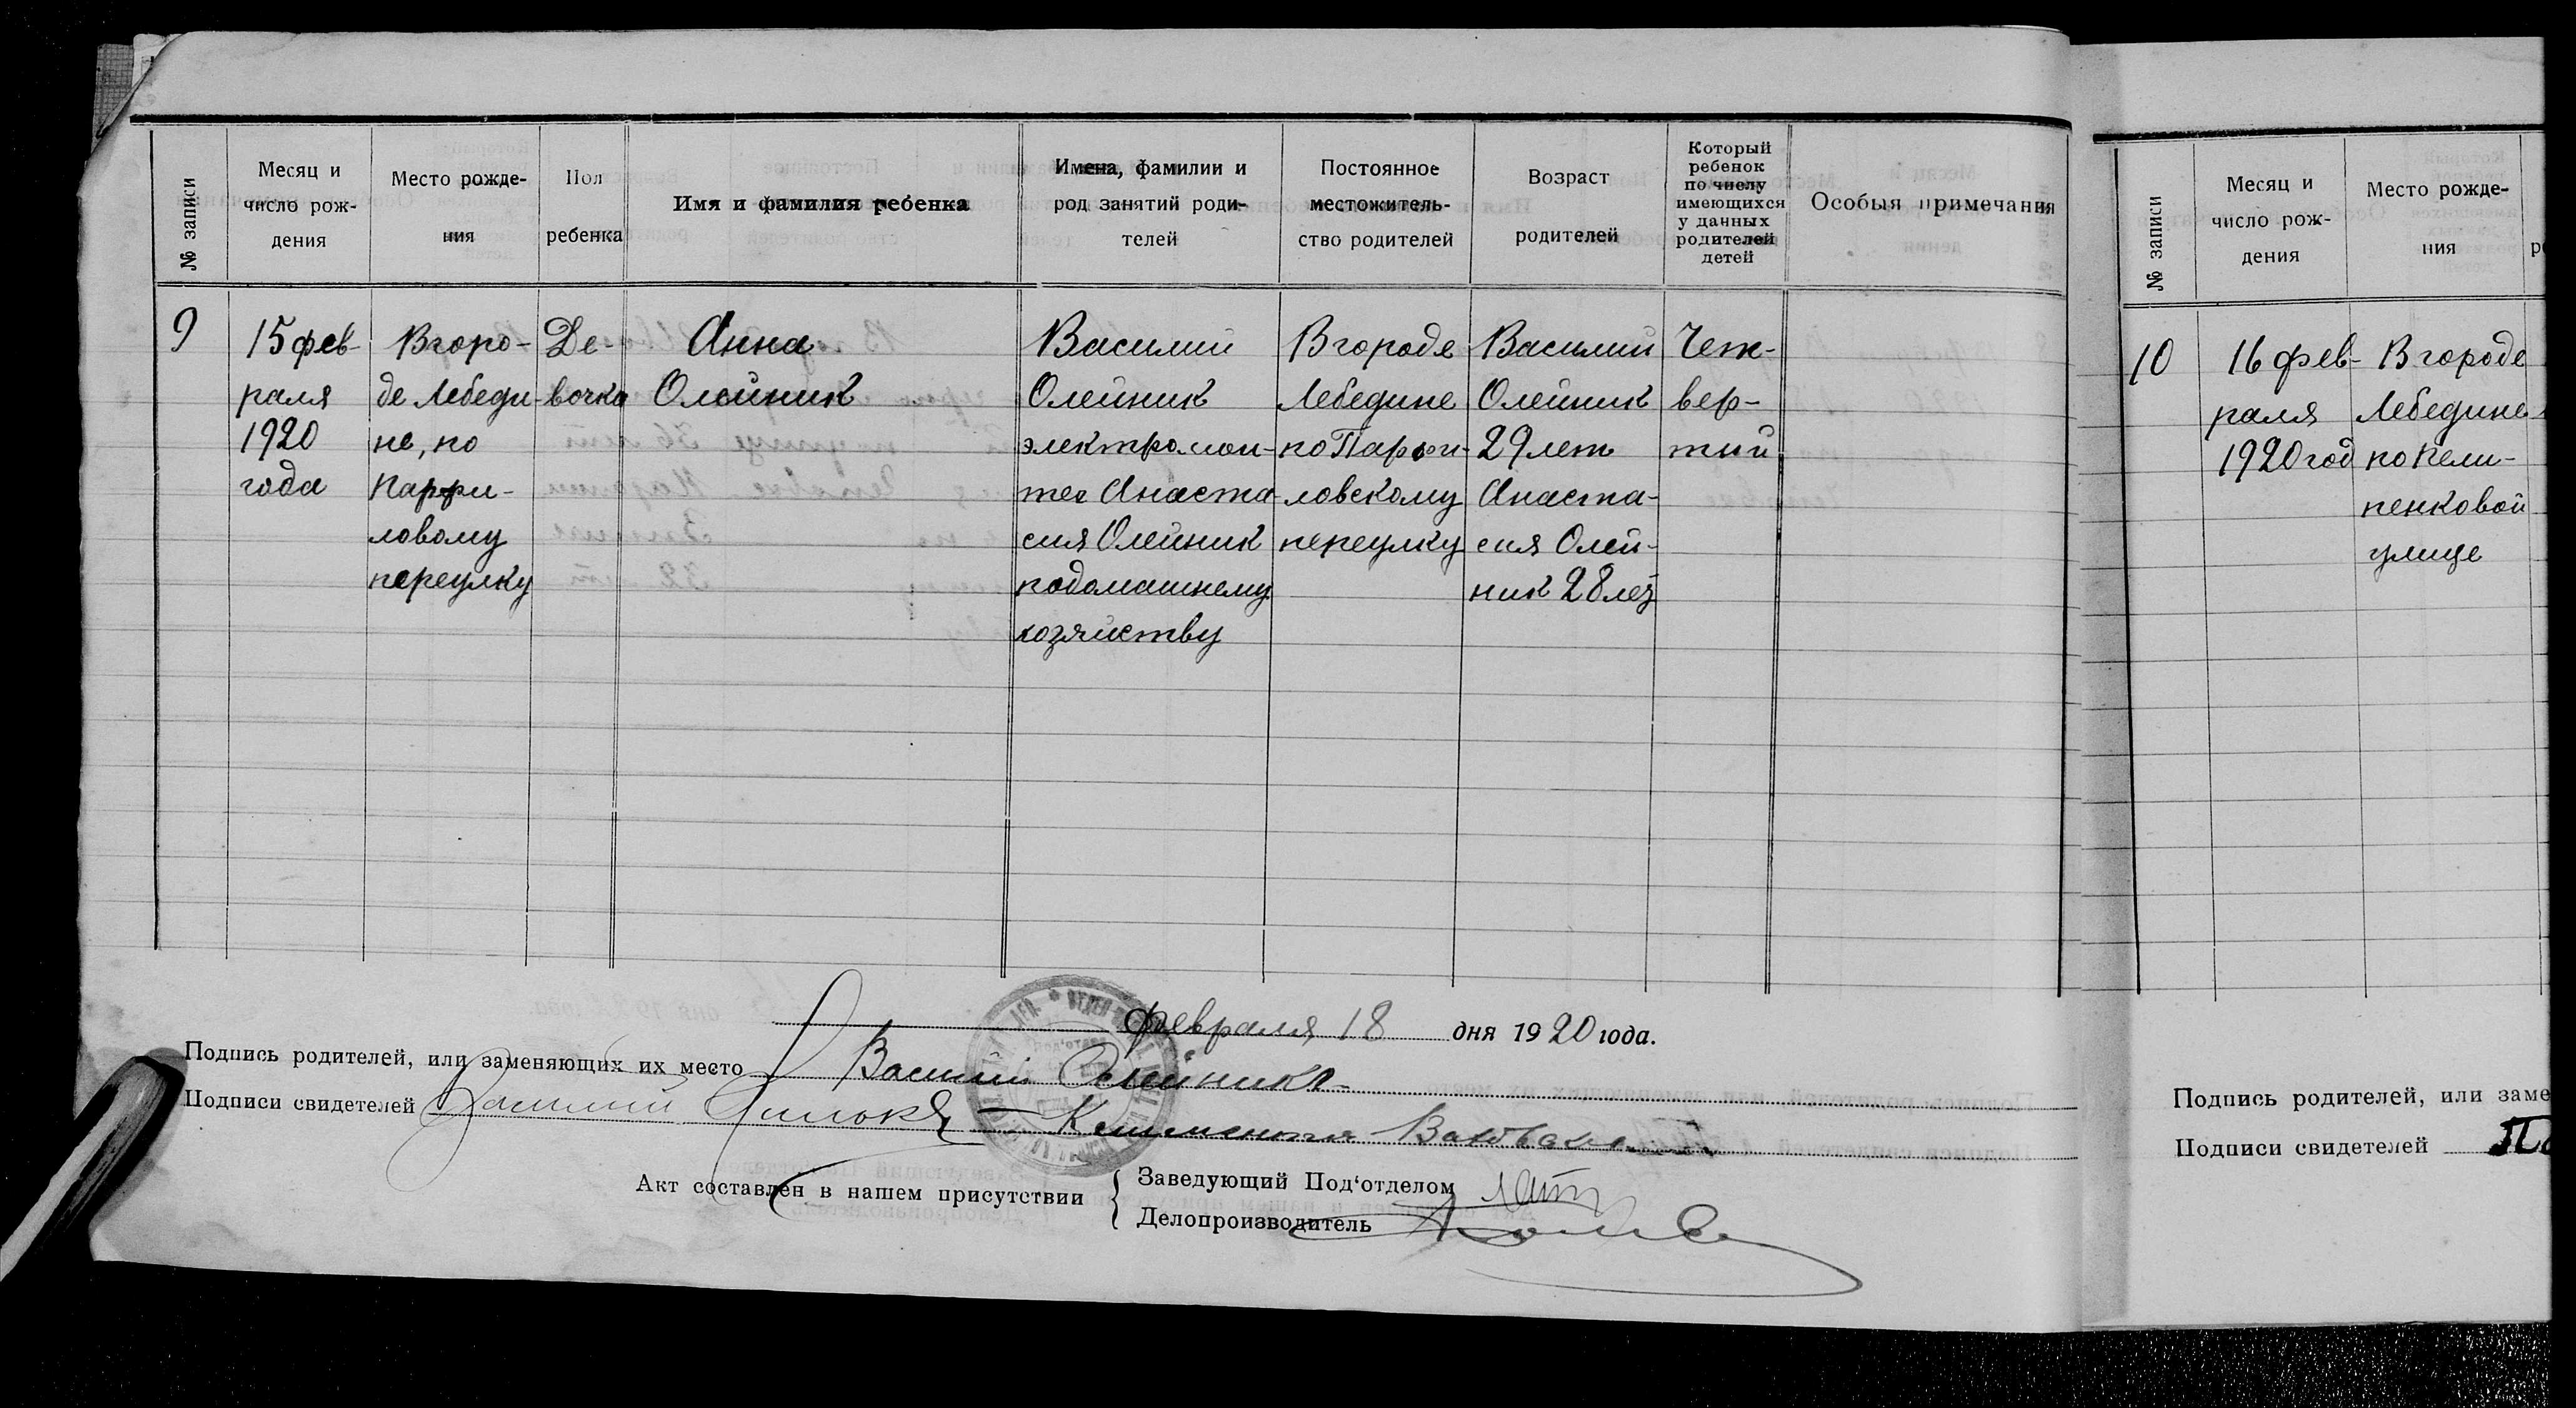 № записи
Месяц и
число рож-
дения
Место рожде-
ния
Пол
ребенка
Имя и фамилия ребенка
Имена, фамилии и
род занятий роди-
телей
Постоянное
местожитель-
ство родителей
Возраст
родителей
Который
ребенок
по числу
имеющихся
у данных
родителей
детей
Особыя примечания
9
15 фев-
раля
1920
года
В горо-
де Лебеди-
не, по
Парфи-
ловому
переулку
Де-
вочка
Анна
Олейник
Василий
Олейник
электромон-
тер Анаста-
сия Олейник
по домашнему
хозяйству
В городе
Лебедине
по Парфи-
ловскому
переулку
Василий
Олейник
29 лет
Анаста-
сия Олей-
ник 28 лет
Чет-
вер-
тый
Февраля 18 дня 1920 года.
Подпись родителей, или заменяющих их место Василий Олейник
Подписи свидетелей Василий
Акт составлен в нашем присутствии
Заведующий Под'отделом
Делопроизводитель
№ записи
Месяц и
число рож-
дения
Место рожде-
ния
10
16 фев-
раля
1920 год
В городе
Лебедине
по
пенковой
улице
Подпись родителей, или заме
Подписи свидетелей